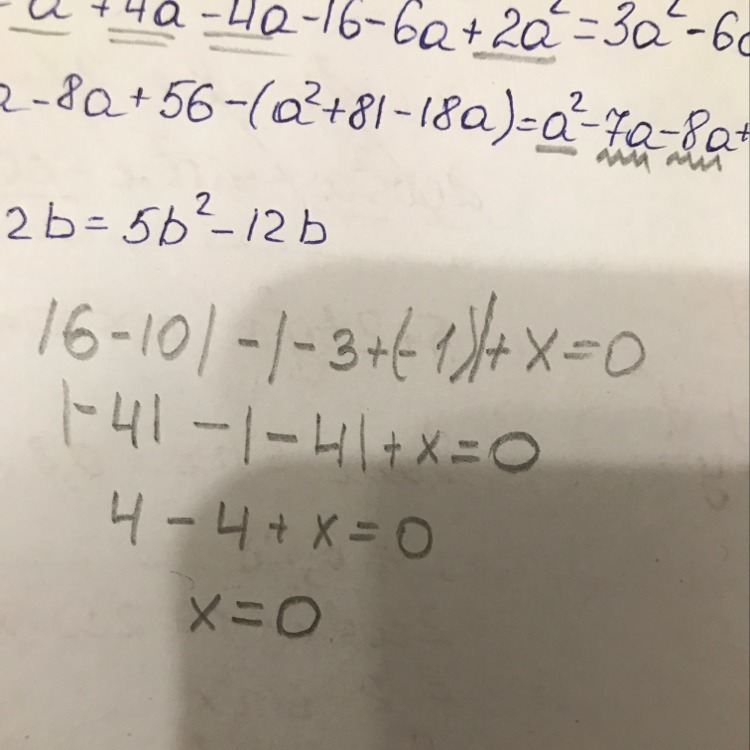 + 4a - 4a - 16 - 6a + 2a² = 3a² - 6
- 8a + 56 - (a² + 81 - 18a) = a² - 7a - 8a +
2b = 5b² - 12b
|6 - 10| - |-3 + (-1)| + x = 0
|-4| - |-4| + x = 0
4 - 4 + x = 0
x = 0